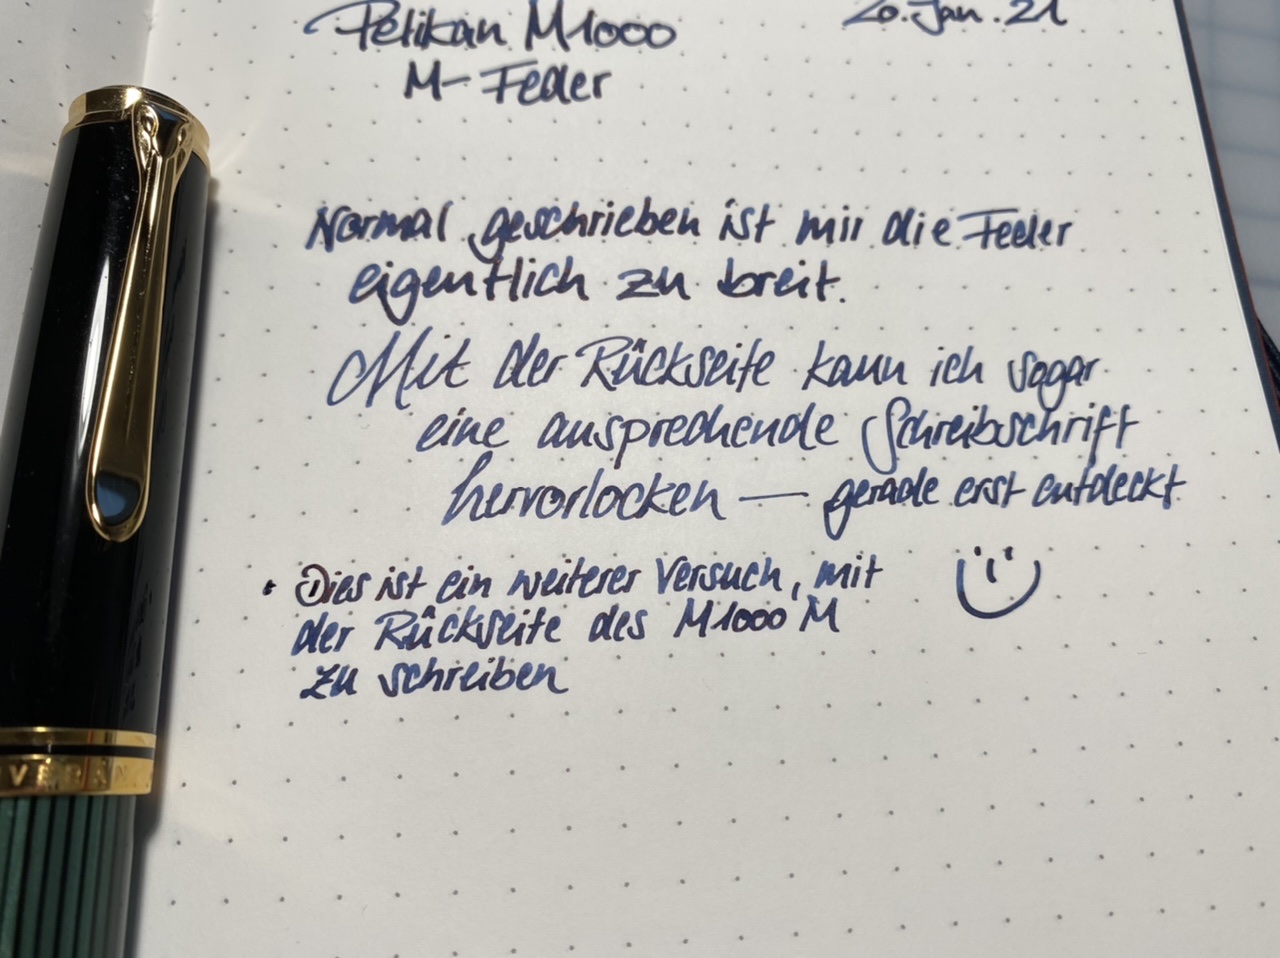 Pelikan M1000
20. Jan. 21
M-Feder
Normal geschrieben ist mir die Feder
eigentlich zu breit.
Mit der Rückseite kann ich sogar
eine ansprechende Schreibschrift
hervorlocken — gerade erst entdeckt
• Dies ist ein weiterer Versuch, mit
der Rückseite des M1000 M
zu schreiben